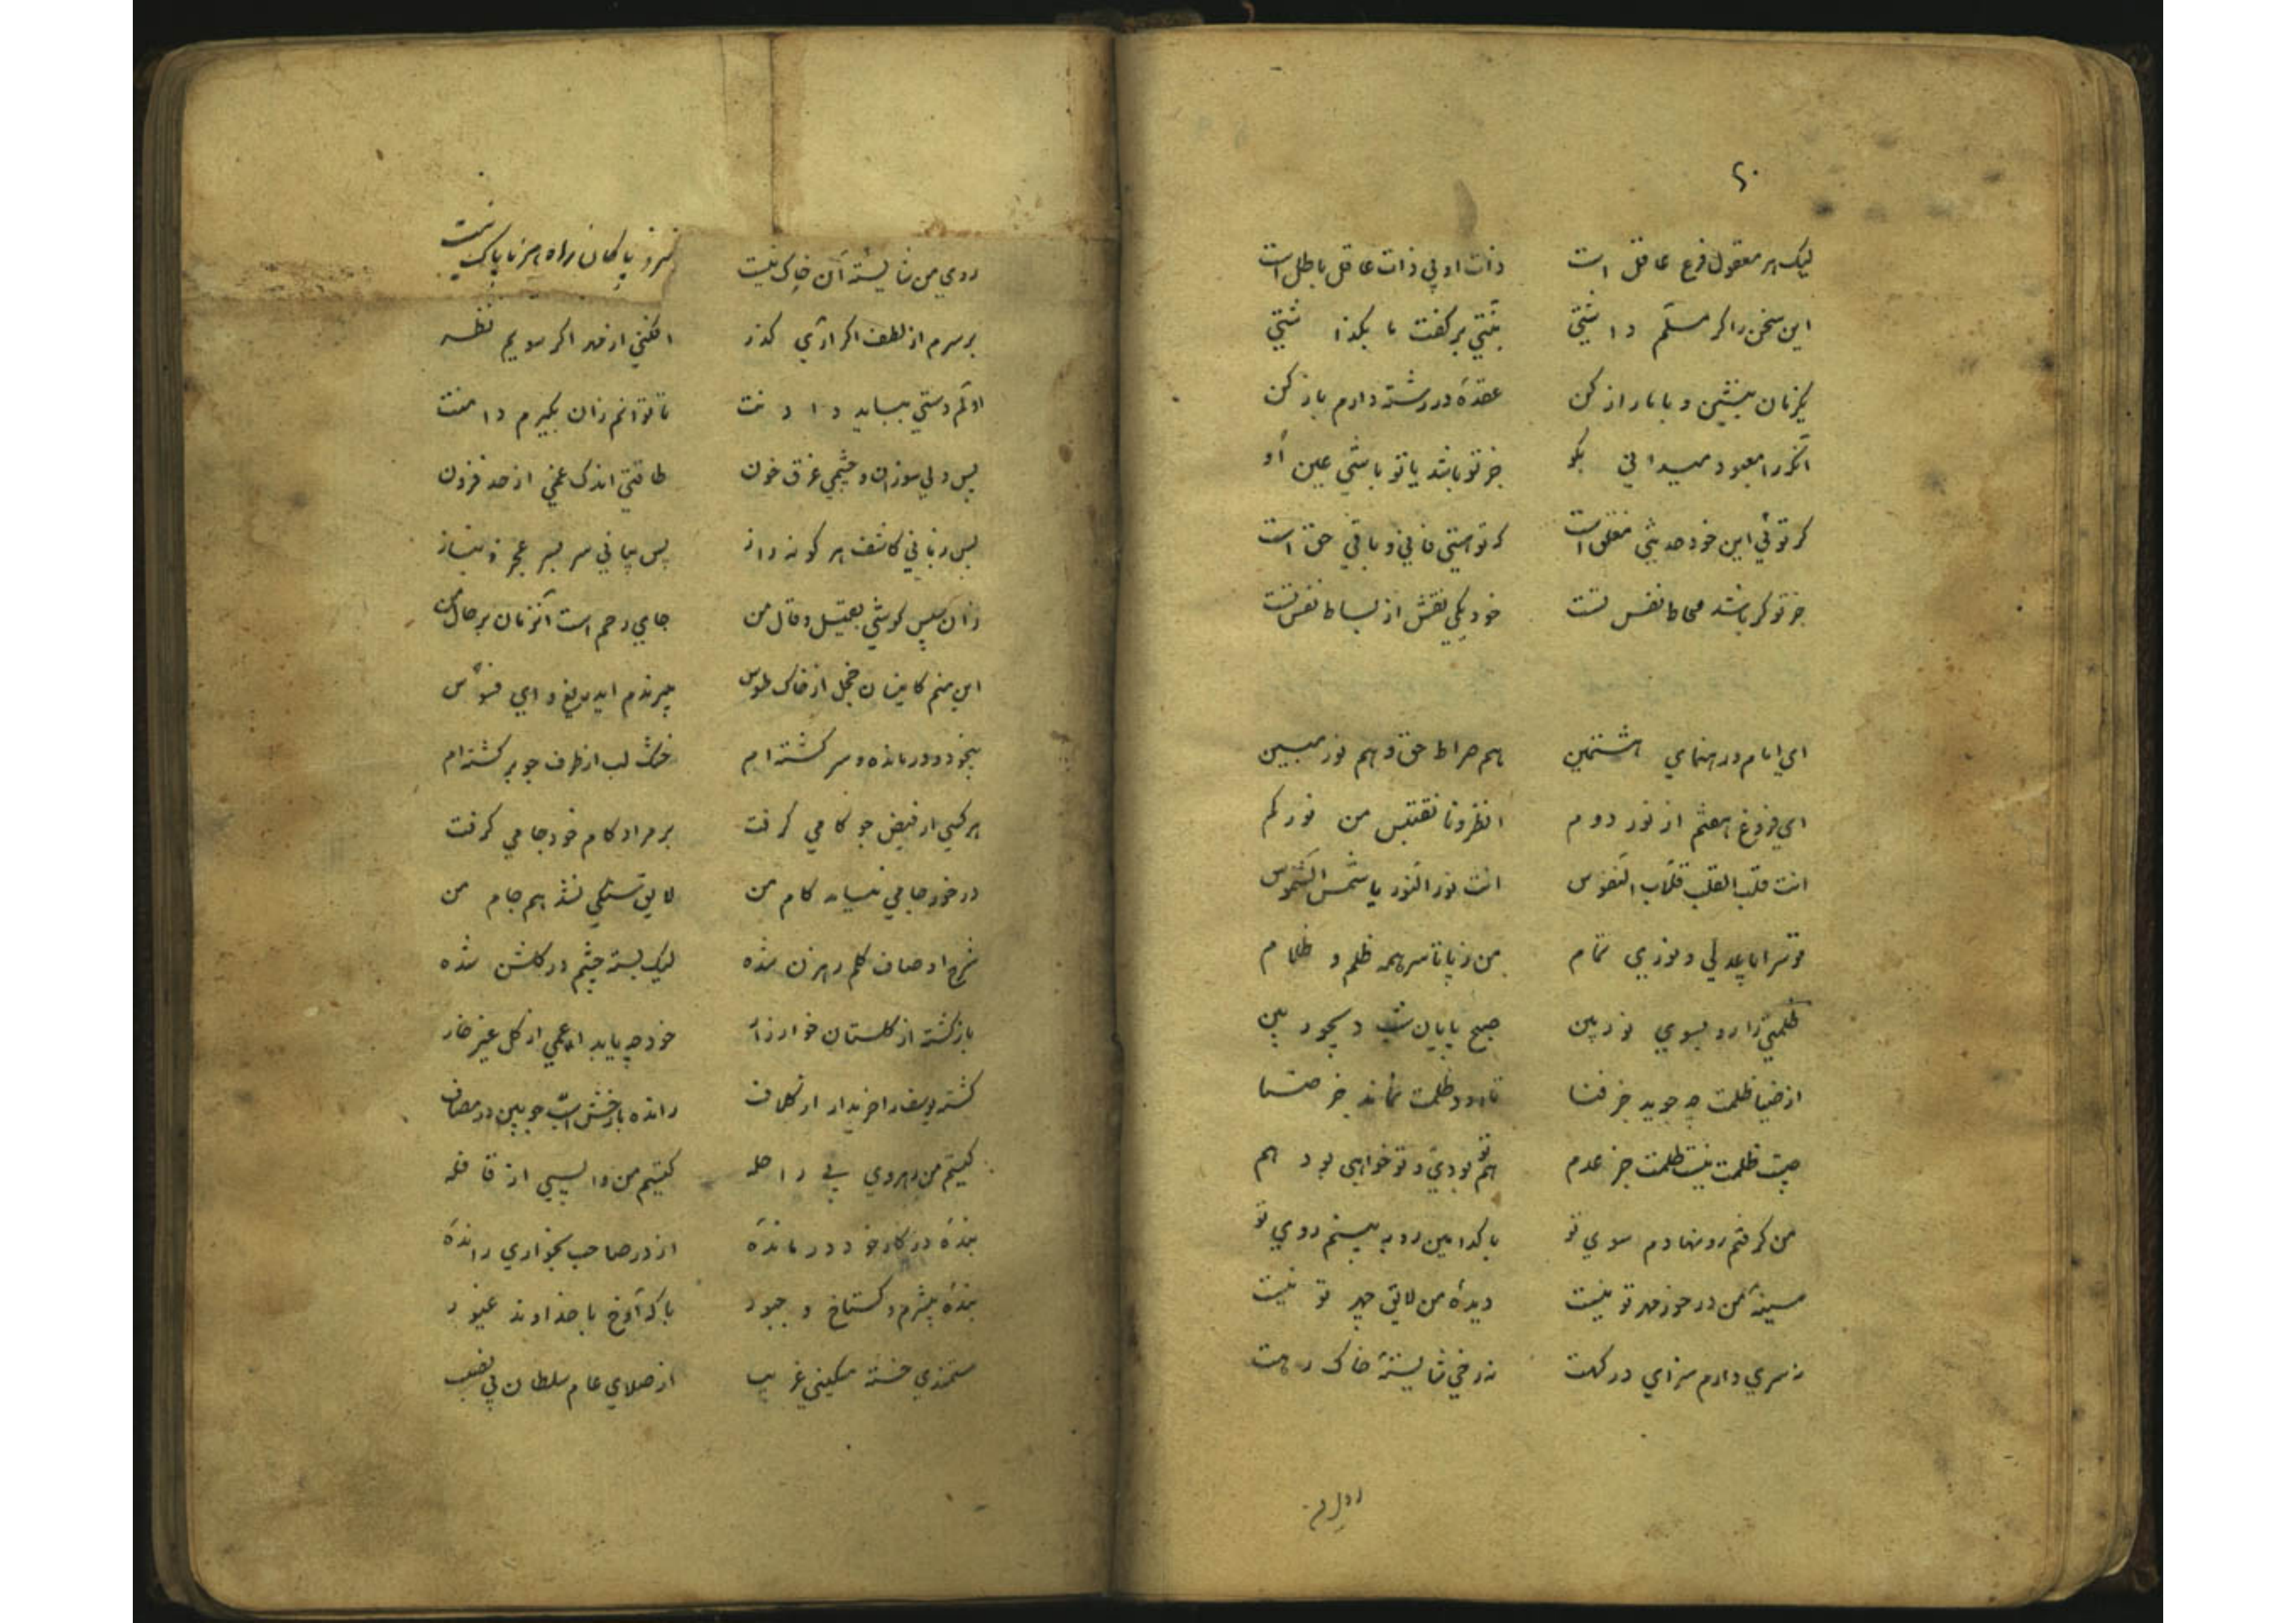 ۶۰
لیک هر معقول فرع عاقل است ذات او بی ذات عاقل باطل است
این سخن را کر مسلم داشتی نیتی بر کفت ما بکذاشتی
یکزمان بنشین و با ما راز کن عقدهٔ در رشته دارم باز کن
آنکه را معبود میدانی بکو جز تو باشد یا تو باشی عین او
کر توئی این خود حدیثی مغلق است کر تو هستی فانی و باقی حق است
جز تو کر باشد محاط نفس تست خود یکی نقش از بساط نفس تست
ای امام و رهنمای هشتمین هم صراط حق و هم نور مبین
ای فروغ هفتم از نور دوم انظرونا نقتبس من نورکم
انت قلب القلب قلاب النفوس انت نور النور یا شمس الشموس
تو سراپا عدلی و نوری تمام من ز پا تا سر همه ظلم و ظلام
ظلمتی را رو بسوی نور بین صبح پایان شب دیجور بین
از ضیا ظلمت چه جوید جز فنا تا رود ظلمت نماند جز ضیا
چیست ظلمت نیست ظلمت جز عدم هم تو بودی و تو خواهی بود هم
من کرفتم رو نهادم سوی تو با کدامین رو به بینم روی تو
سینهٔ من در خور مهر تو نیست دیدهٔ من لایق چهر تو نیست
نه سری دارم سزای درکهت نه رخی شایستهٔ خاک رهت
روی من
روی من شایستهٔ آن خاک نیست نزد پاکان راه هر ناپاک نیست
بر سرم از لطف اکر آری کذر افکنی از مهر اکر سویم نظر
اولم دستی بباید دادنت تا توانم زان بکیرم دامنت
پس دلی سوزان و چشمی غرق خون طاقتی اندک غمی از حد فزون
پس زبانی کاشف هر کونه راز پس بیانی سر بسر عجز و نیاز
زان سپس کوشی بقیل و قال من جای رحم است آنزمان بر حال من
این منم کاینسان خجل از خاک طوس میبرندم ای دریغ و ای فسوس
بیخود و درمانده و سرکشته ام خشک لب از طرف جو برکشته ام
هر کسی از فیض جو کامی کرفت بر مراد کام خود جامی کرفت
در خور جامی نیامد کام من لایق سنکی نشد هم جام من
شرح اوصاف کلم رهزن شده لیک بسته چشم در کلشن شده
بازکشته از کلستان خوار زار خود چه یابد اعمی از کل غیر خار
کشته یوسف را خریدار از کلاف رانده با رخش اسب چوبین در مصاف
کیستم من رهروی بی راحله کیستم من واپسی از قافله
بندهٔ در کار خود درماندهٔ از در صاحب بخواری راندهٔ
بندهٔ بیشرم و کستاخ و جسور با که آوخ با خداوند غیور
مستمندی خسته مسکینی غریب از صلای عام سلطان بی نصیب